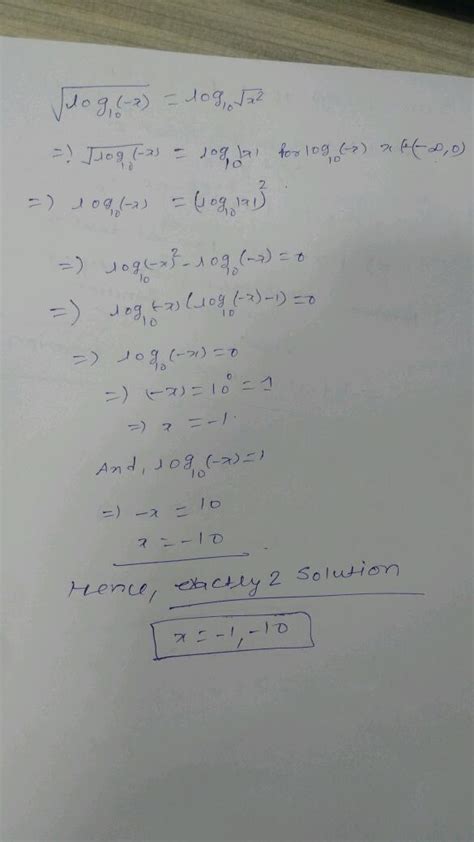 √log₁₀(-x) = log₁₀√x²
=) √log₁₀(-x) = log₁₀|x| for log₁₀(-x) x ∈ (-∞,0)
=) log₁₀(-x) = (log₁₀|x|)²
=) log₁₀(-x)² - log₁₀(-x) = 0
=) log₁₀(-x) (log₁₀(-x) - 1) = 0
=) log₁₀(-x) = 0
=) (-x) = 10⁰ = 1
=) x = -1
And, log₁₀(-x) = 1
=) -x = 10
x = -10
Hence, exactly 2 solution
x = -1, -10